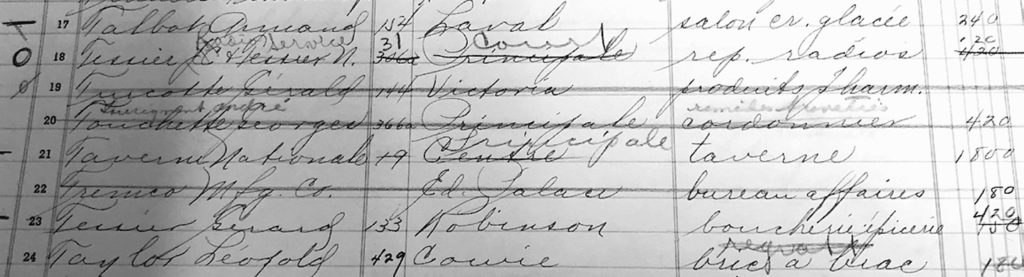 17 Talbot Armand 152 Laval salon cr. glacée 240
Radio Service 31 Cowie 120
18 Tessier J.C. Tessier N. 366a Principale rep. radios 420
19 Turcotte Gérald 144 Victoria produits pharm.
André
20 Touchette Georges 366a Principale cordonnier 420
Principale
21 Taverne Nationale 19 Centre taverne 1800
22 Tremco Mfg. Co. Ed. Palace bureau affaires 180
420
23 Tessier Gérard 133 Robinson boucherie épicerie 450
regrat
24 Taylor Léopold 429 Cowie bric à brac 180